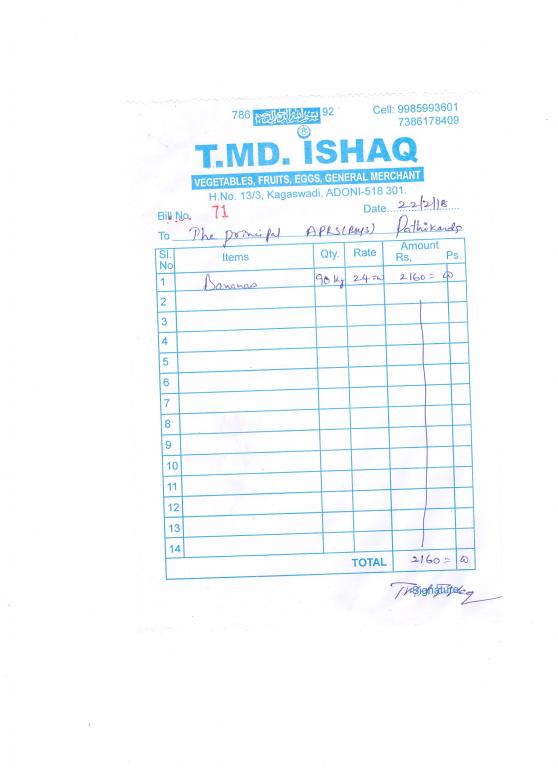 786 بسم الله الرحمن الرحيم 92 Cell: 9985993601
7386178409
T.MD. ISHAQ
VEGETABLES, FRUITS, EGGS, GENERAL MERCHANT
H.No. 13/3, Kagaswadi, ADONI-518 301.
Bill No. 71 Date 22/2/18
To The principal APRS(Boys) Pathikonda
Sl. No Items Qty. Rate Amount Rs, Ps.
1 Bananas 90 kg 24=00 2160=00
2
3
4
5
6
7
8
9
10
11
12
13
14
TOTAL 2160=00
Signature